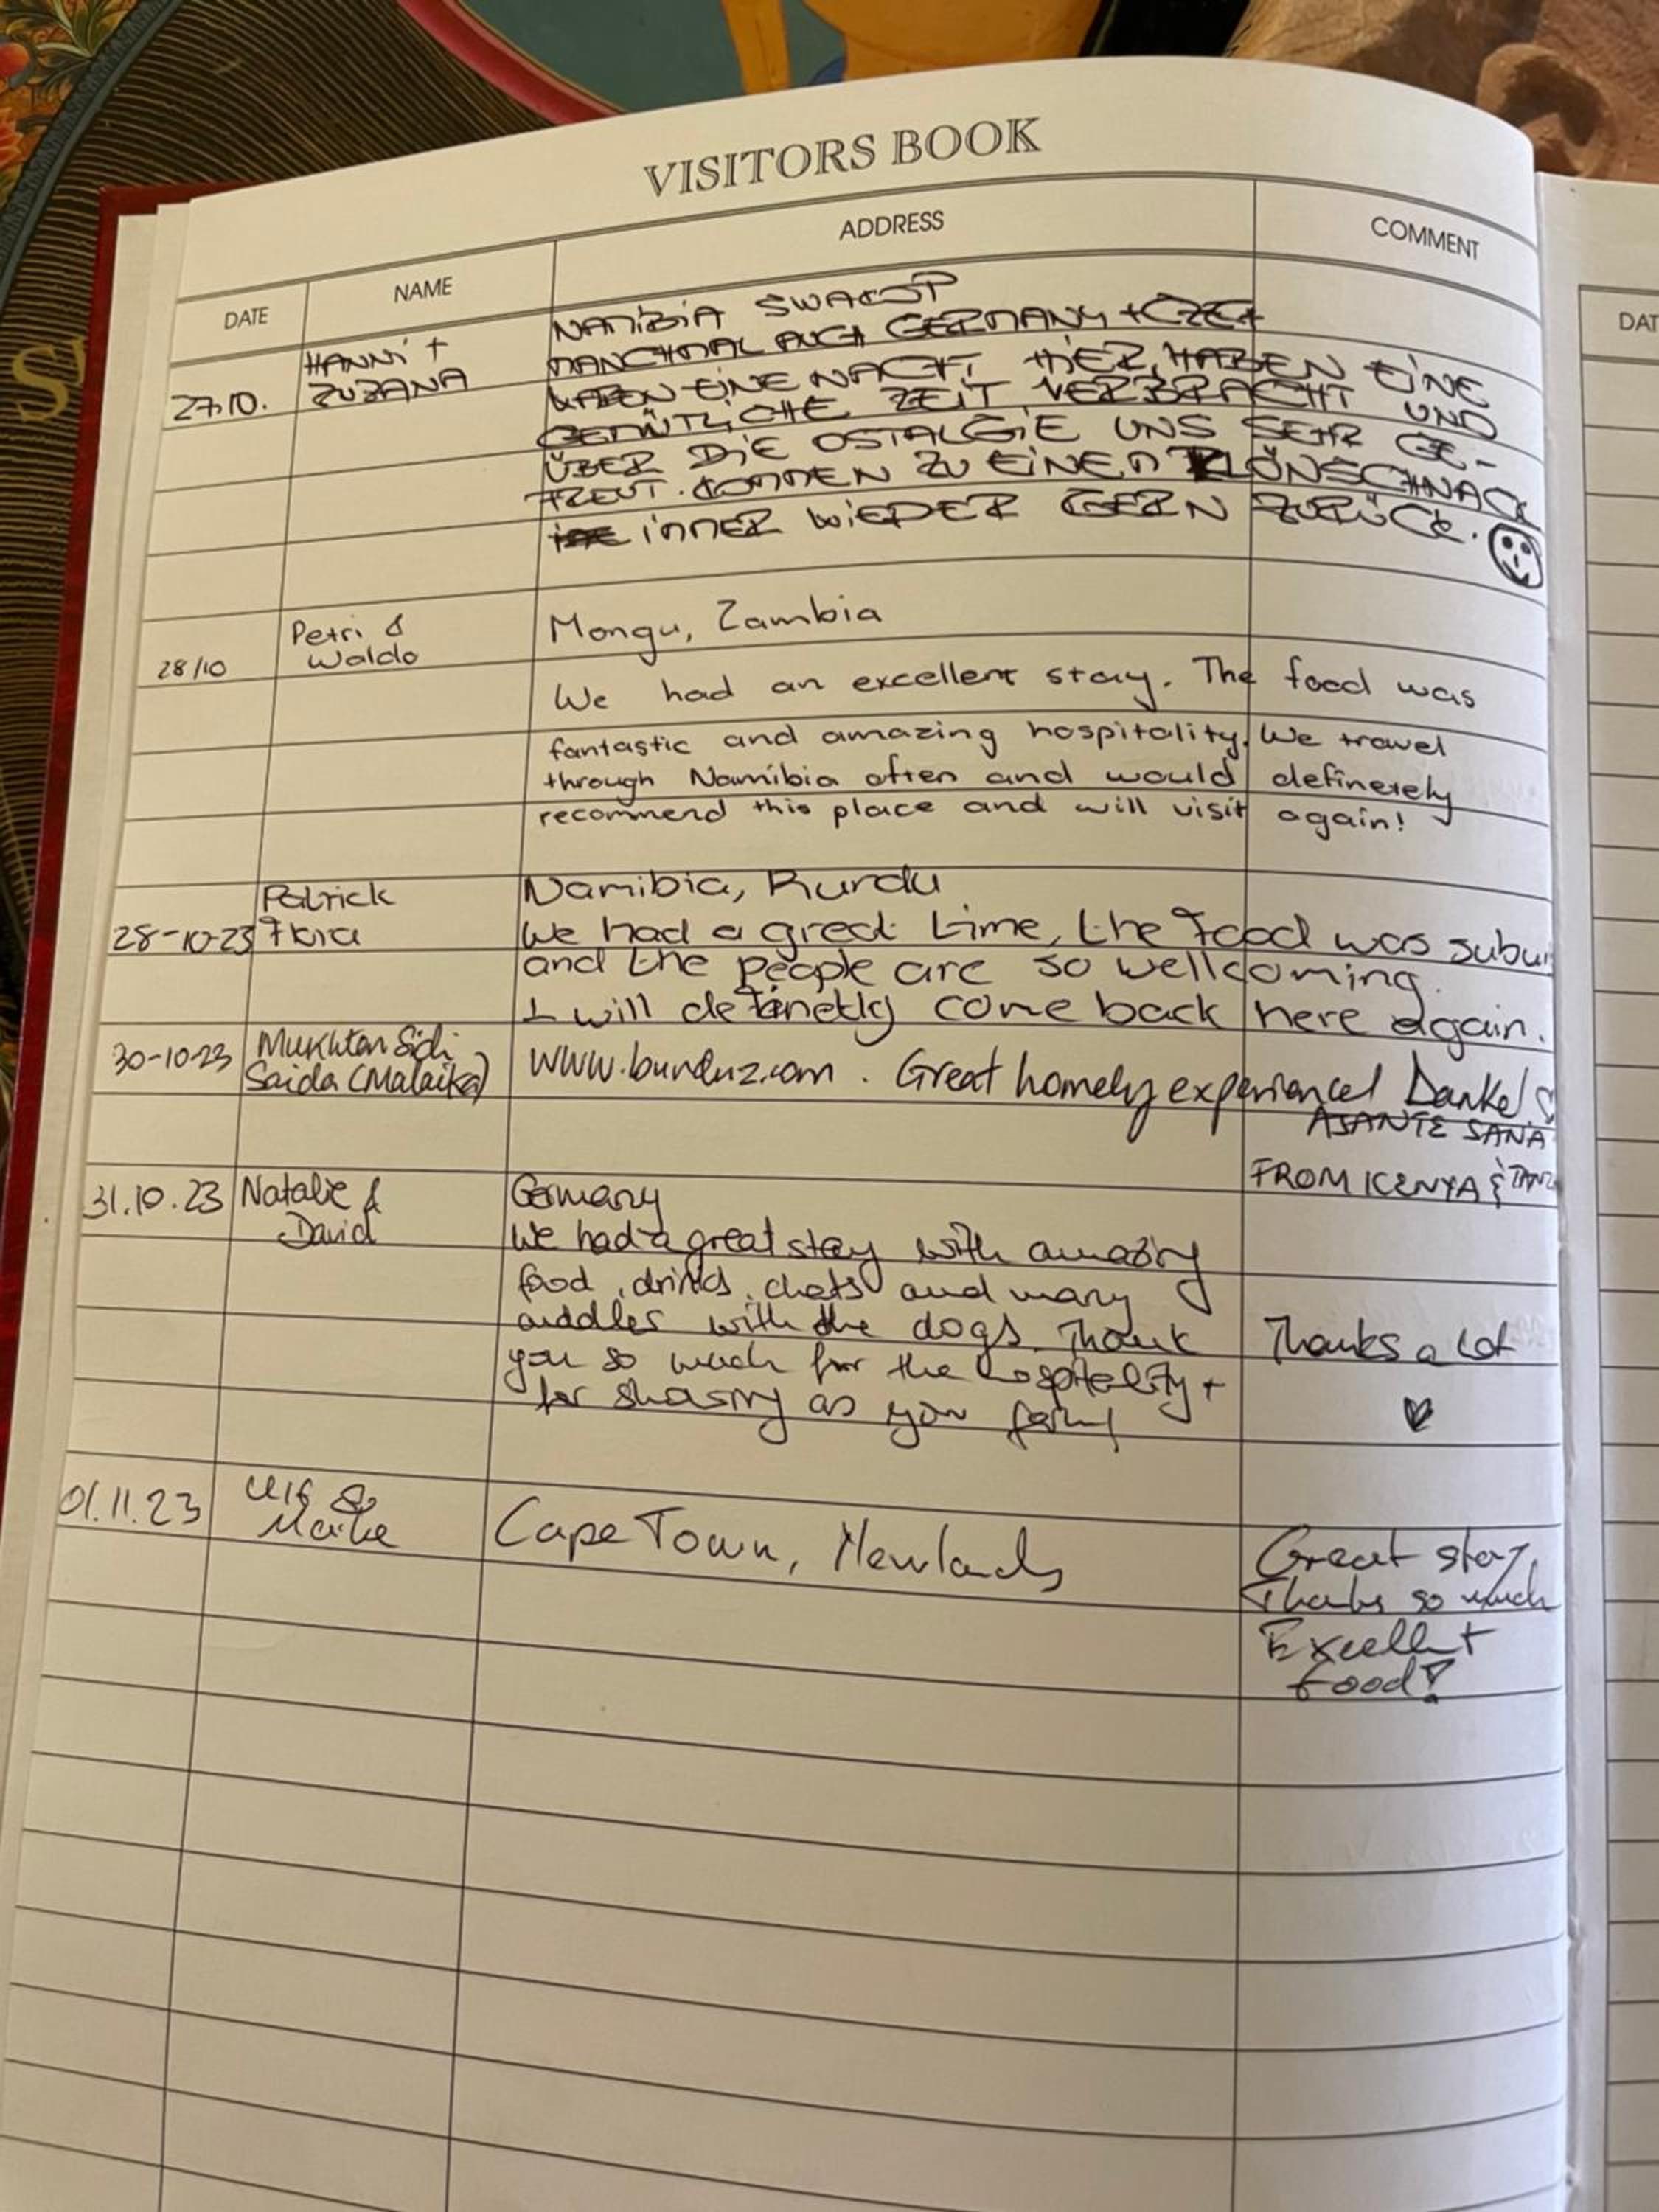 VISITORS BOOK
DATE NAME ADDRESS COMMENT
DAT
27.10. HANNI + ZUZANA
NAMIBIA SWAKOP
MANCHMAL AUCH GERMANY + CZECH
HABEN EINE NACHT HIER, HABEN EINE
GEMÜTLICHE ZEIT VERBRACHT UND
ÜBER DIE OSTALGIE UNS SEHR GE-
FREUT. KOMMEN ZU EINEM KLÖNSCHNACK
IMMER WIEDER GERN ZURÜCK.
28/10 Petri & Waldo
Mongu, Zambia
We had an excellent stay. The food was
fantastic and amazing hospitality. We travel
through Namibia often and would definetely
recommend this place and will visit again!
28-10-23 Patrick
Namibia, Rundu
We had a great time, the food was
and the people are so wellcoming.
I will definetly come back here again.
30-10-23 Mukhtar Sidi
Saida (Malaika)
www.bunduz.com. Great homely experience! Danke!
ASANTE SANA
FROM KENYA & TANZ
31.10.23 Natalie & David
Germany
We had a great stay with amazing
food, drinks, chats and many
cuddles with the dogs. Thank
you so much for the hospitality +
for sharing as you
Thanks a lot
01.11.23 Ulf & Maike
Cape Town, Newlands
Great stay,
Thanks so much
Excellent
food!